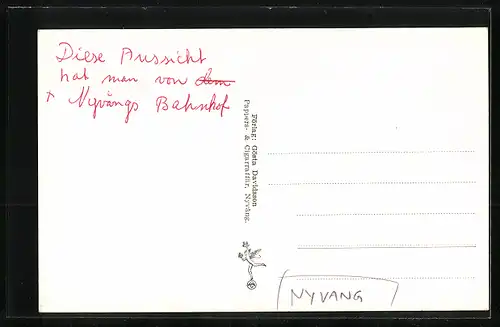 Diese Aussicht
hat man von dem
+ Nyvångs Bahnhof
Förlag: Gösta Davidsson
Pappers- & Cigarraffär, Nyvång.
NYVANG